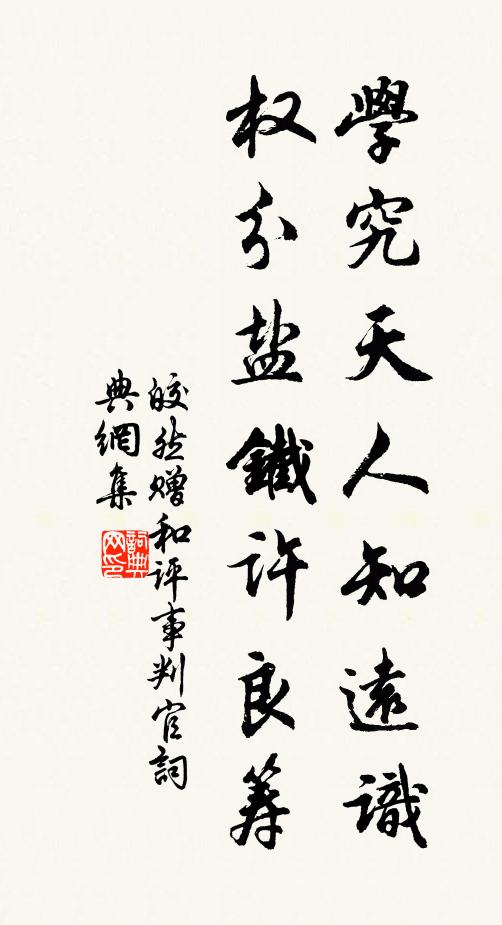 學究天人知遠識
权分盐鐵許良筹
皎然赠和评事判官詞
典網集
詞典
网印